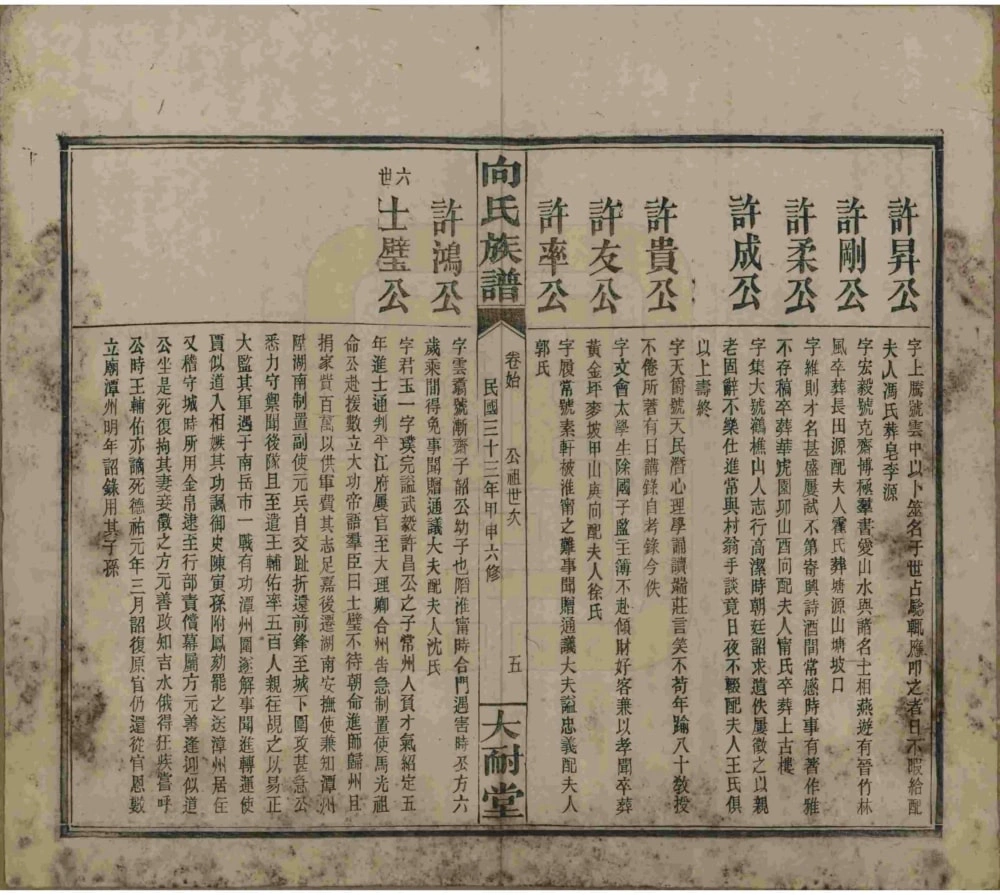 許昇公
字上騰號雲中以卜筮名于世占驗輒應叩之者日不暇給配
夫人馮氏葬皂李源
許剛公
字宏毅號克齋博極羣書愛山水與諸名士相燕遊有晉竹林
風卒葬長田源配夫人霍氏葬塘源山塘坡口
許柔公
字維則才名甚盛屢試不第寄興詩酒間常感時事有著作雅
不存稿卒葬華虎園卯山酉向配夫人甯氏卒葬上古樓
許成公
字集大號鵝樵山人志行高潔時朝廷詔求遺佚屢徵之以親
老固辭不樂仕進常與村翁手談竟日夜不輟配夫人王氏俱
以上壽終
許貴公
字天爵號天民潛心理學誦讀端莊言笑不苟年踰八十教授
不倦所著有日講錄自考錄今佚
許友公
字文會太學生除國子監主簿不赴傾財好客兼以孝聞卒葬
黃金坪麥坡甲山庚向配夫人徐氏
許率公
字履常號素軒被淮甯之難事聞贈通議大夫謚忠義配夫人
郭氏
向氏族譜
卷始
公祖世次
五
民國三十三年甲申六修
大耐堂
許鴻公
字雲翥號漸齋子韶公幼子也陷淮甯時合門遇害時公方六
歲乘間得免事聞贈通議大夫配夫人沈氏
六世
士璧公
字君玉一字璞完謚武毅許昌公之子常州人負才氣紹定五
年進士通判平江府屢官至大理卿合州告急制置使馬光祖
命公赴援數立大功帝語羣臣曰士璧不待朝命進師歸州且
捐家貲百萬以供軍費其志足嘉後遷湖南安撫使兼知潭州
陞湖南制置副使元兵自交趾折還前鋒至城下圍攻甚急公
悉力守禦聞後隊且至遣王輔佑率五百人親往覘之以易正
大監其軍遇于南岳市一戰有功潭州圍遂解事聞進轉運使
賈似道入相嫉其功諷御史陳寅孫附鳳劾罷之送漳州居住
又稽守城時所用金帛逮至行部責償幕屬方元善逢迎似道
公坐是死復拘其妻妾徵之方元善改知吉水俄得狂疾嘗呼
公時王輔佑亦謫死德祐元年三月詔復原官仍還從官恩數
立廟潭州明年詔錄用其子孫